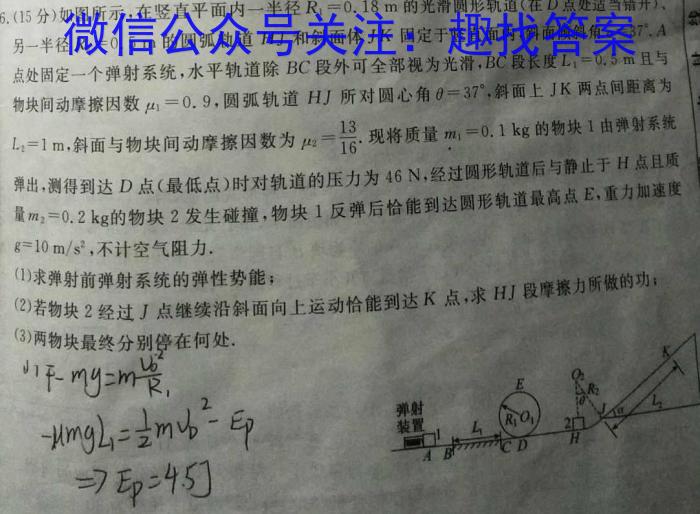 6.(15分)如图所示,在竖直平面内一半径R₁=0.18 m的光滑圆形轨道(在D点处适当错开)、
另一半径 的圆弧轨道HJ和斜面体JK固定于 37°.A
微信公众号关注：趣找答案
点处固定一个弹射系统,水平轨道除BC段外可全部视为光滑,BC段长度L₁=0.5m且与
物块间动摩擦因数μ₁=0.9,圆弧轨道HJ所对圆心角θ=37°,斜面上JK两点间距离为
L₂=1m,斜面与物块间动摩擦因数为μ₂=13/16.现将质量m₁=0.1kg的物块1由弹射系统
弹出,测得到达D点(最低点)时对轨道的压力为46 N,经过圆形轨道后与静止于H点且质
量m₂=0.2 kg的物块2发生碰撞,物块1反弹后恰能到达圆形轨道最高点E,重力加速度
g=10 m/s²,不计空气阻力.
(1)求弹射前弹射系统的弹性势能;
(2)若物块2经过J点继续沿斜面向上运动恰能到达K点,求HJ段摩擦力所做的功;
(3)两物块最终分别停在何处.
(1) F-mg=m v₀²/R₁
-μmgL₁=½mv₀²-Ep
=>Ep=4.5J
弹射
装置
1
A
B
L₁
C
D
E
R₁
O₁
O₂
R₂
θ
2
H
J
α
L₂
K